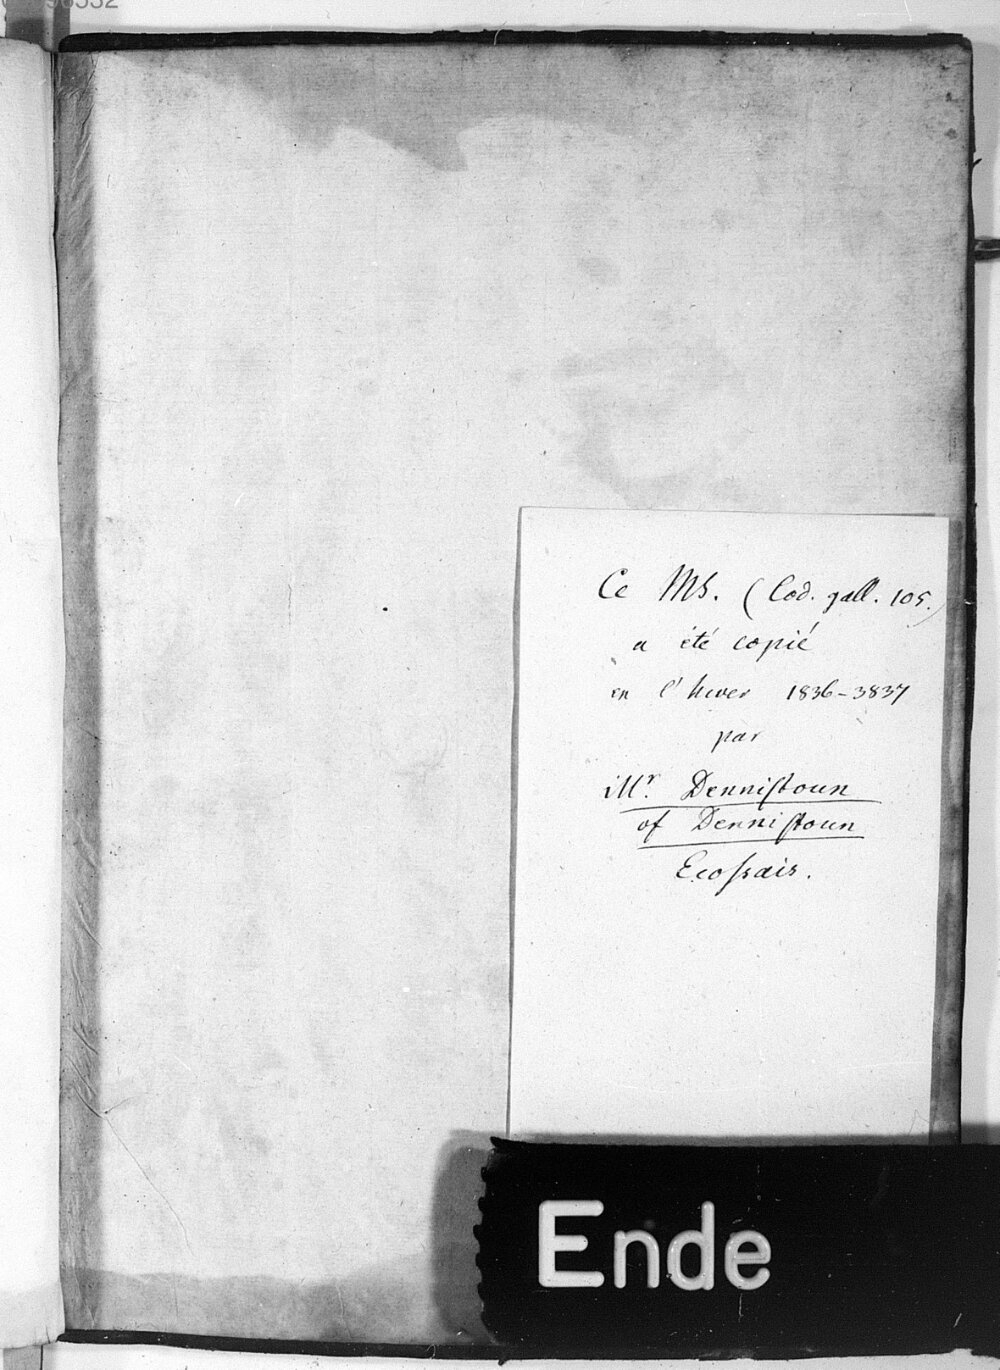 Ce Ms. (Cod. gall. 105.)
a été copié
en l'hiver 1836-3837
par
Mr. Dennistoun
of Dennistoun
Ecossais.
Ende